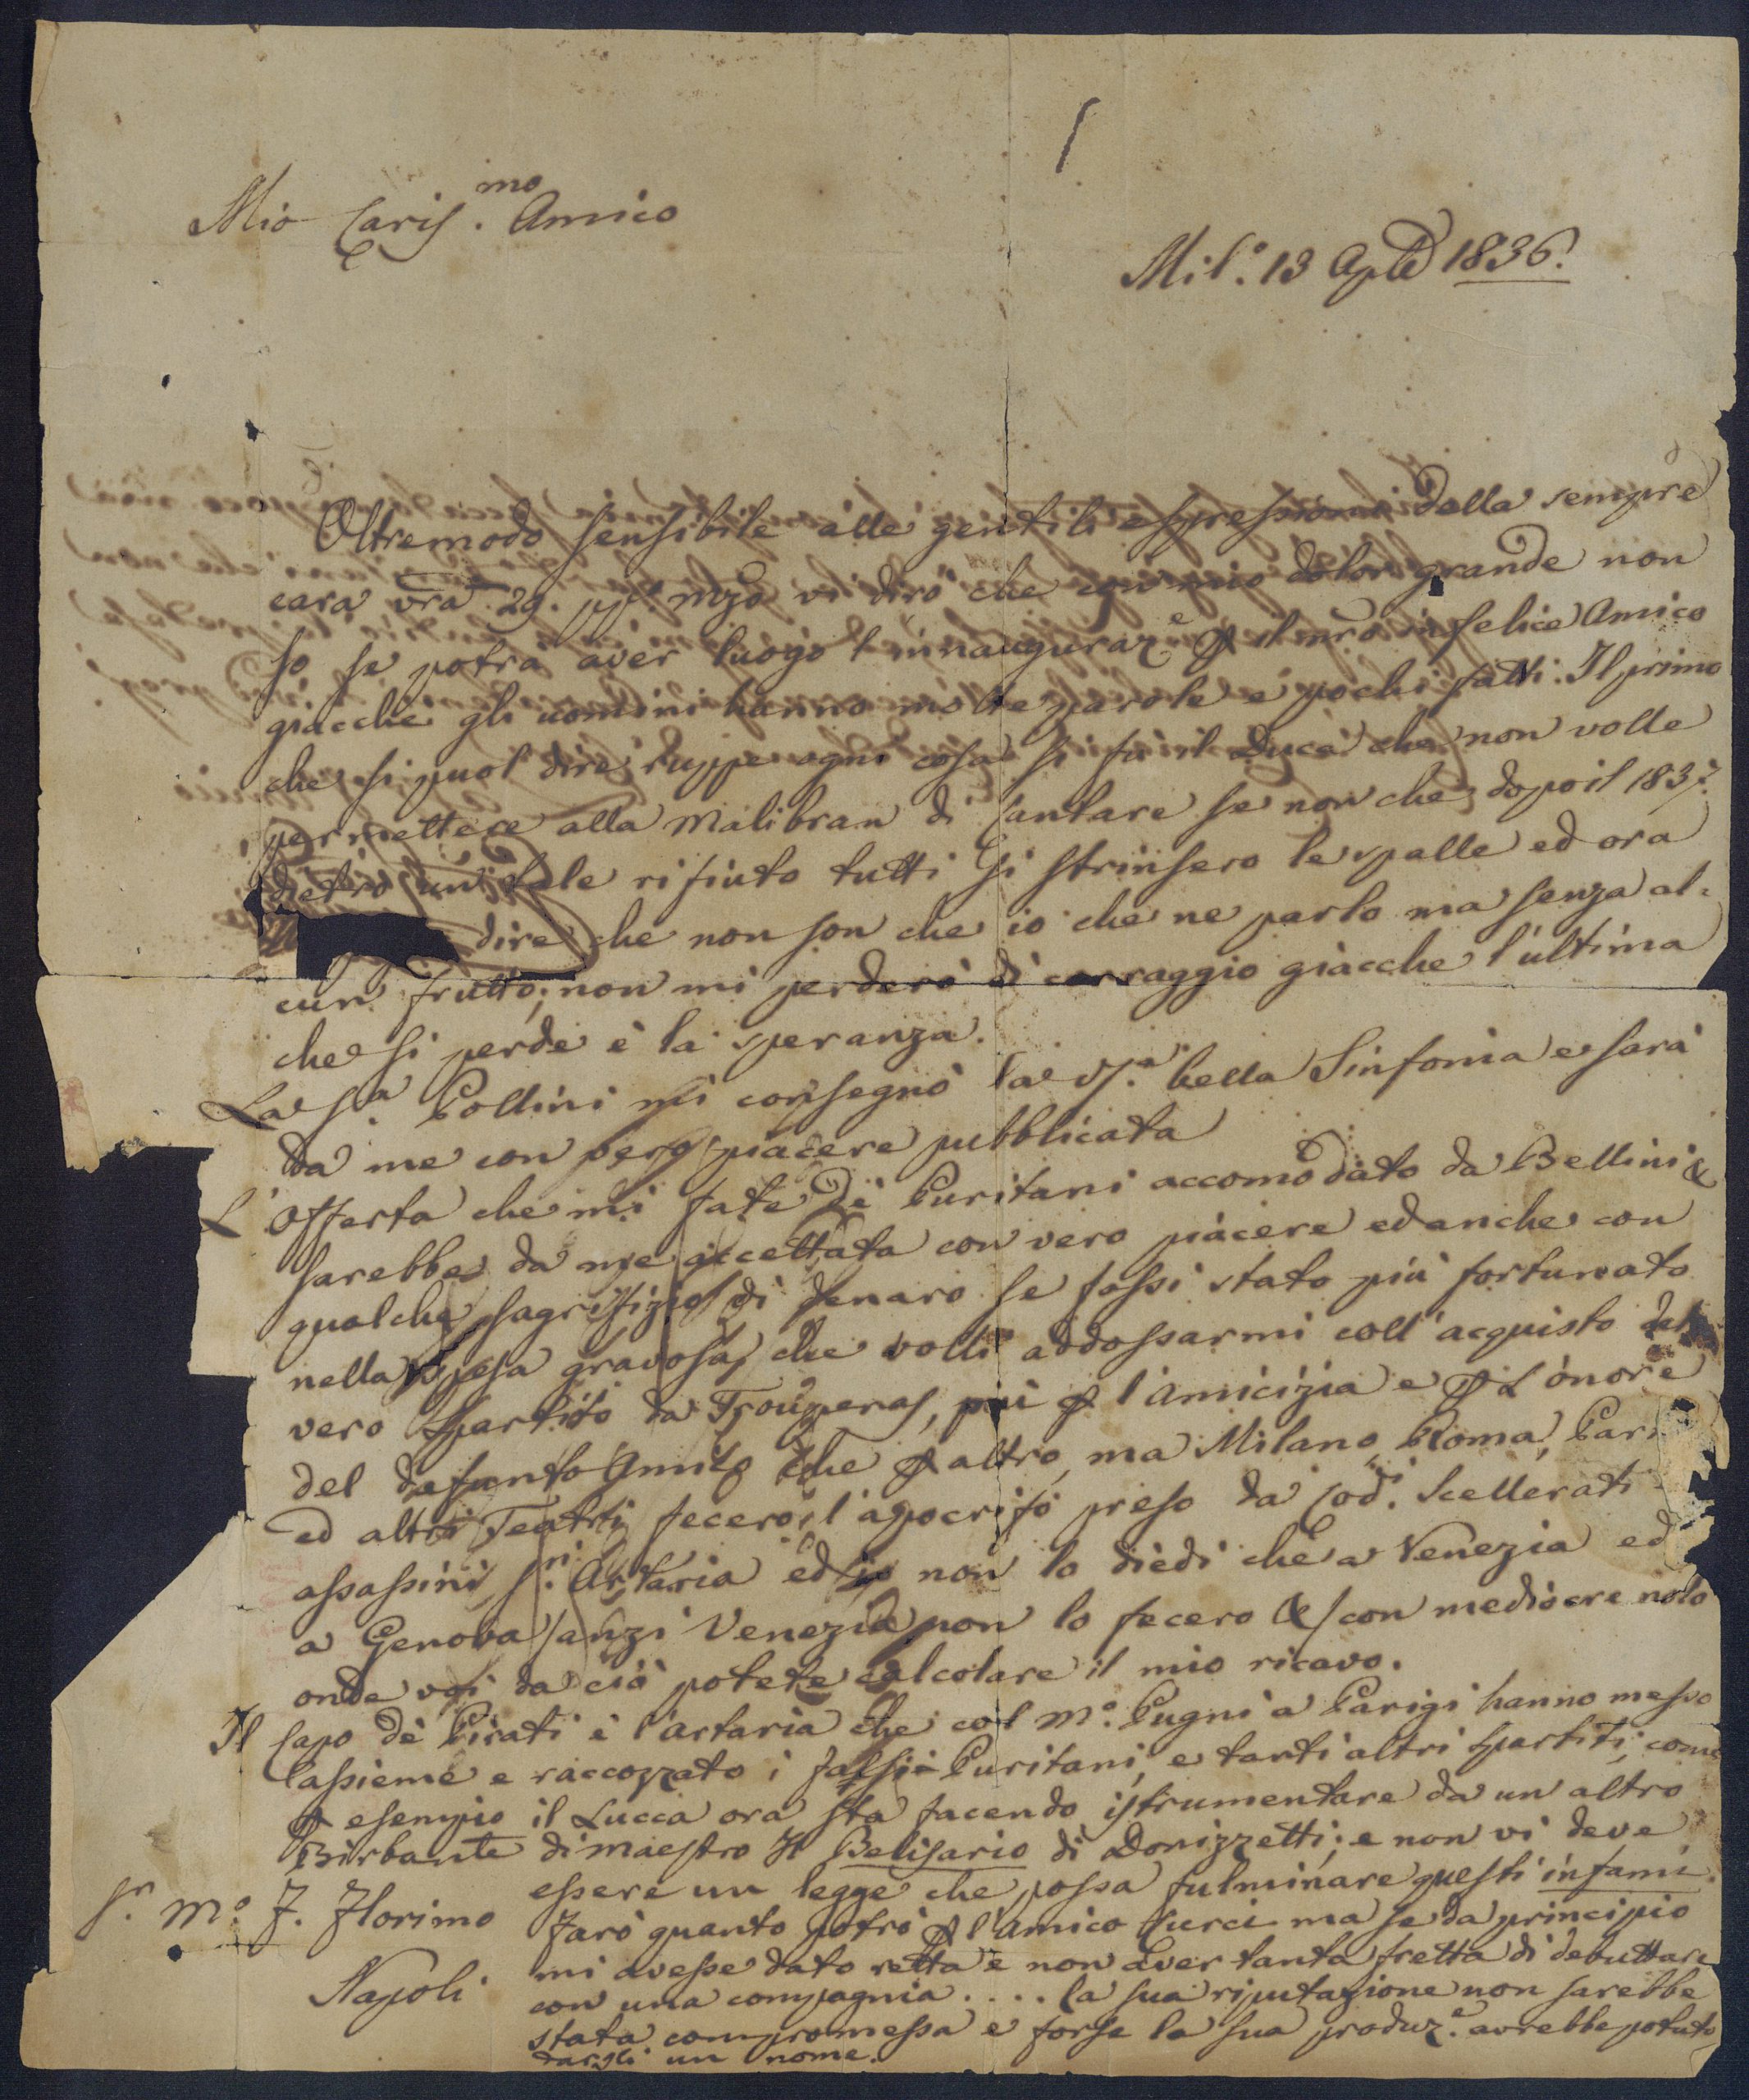 Mio Cariss.mo Amico
Mil.o 13 Aple 1836.
Oltremodo sensibile alle gentili espressioni della sempre
cara vra 29. pp.o mzo vi dirò che con mio dolor grande non
so se potrà aver luogo l'innauguraz.e p il nro infelice Amico
giacchè gli uomini hanno molte parole e pochi fatti. Il primo
che si puol dire ruppe ogni cosa si fu il Duca che non volle
permettere alla Malibran di Cantare se non che dopo il 1837.
dietro un tale rifiuto tutti si strinsero le spalle ed ora
dire che non son che io che ne parlo ma senza al-
cun frutto; non mi perderò di corraggio giacche l'ultima
che si perde è la speranza.
La S.a Pollini mi consegnò la vs.a bella Sinfonia e sarà
da me con vero piacere pubblicata
L'offerta che mi fate de' Puritani accomodato da Bellini &
sarebbe da me accettata con vero piacere ed anche con
qualche sagrifizio di denaro se fossi stato più fortunato
nella spesa gravosa, che volli addossarmi coll'acquisto del
vero Spartito da Trouppenas, più p l'amicizia e p L'onore
del defunto Amico che p altro, ma Milano, Roma,
ed altri Teatri fecero l'apocrifo preso da cod.i Scellerati
assassini, S.ri Artaria ed io non lo diedi che a Venezia ed
a Genova /anzi Venezia non lo fecero &/ con mediocre nolo
onde voi da ciò potete calcolare il mio ricavo.
Il Capo de' Pirati è l'Artaria che col M.o Pugni a Parigi hanno messo
assieme e raccozzato i falsi Puritani, e tanti altri Spartiti, come
p esempio il Lucca ora sta facendo istrumentare da un altro
Birbante di maestro Il Belisario di Donizzetti; e non vi deve
essere un legge che possa fulminare questi infami.
Farò quanto potrò p l'amico Curci ma se da principio
mi avesse dato retta e non aver tanta fretta di debuttare
con una compagnia .... la sua riputazione non sarebbe
stata compromessa e forse la sua produz.e avrebbe potuto
dargli un nome.
S.r M.o F. Florimo
Napoli